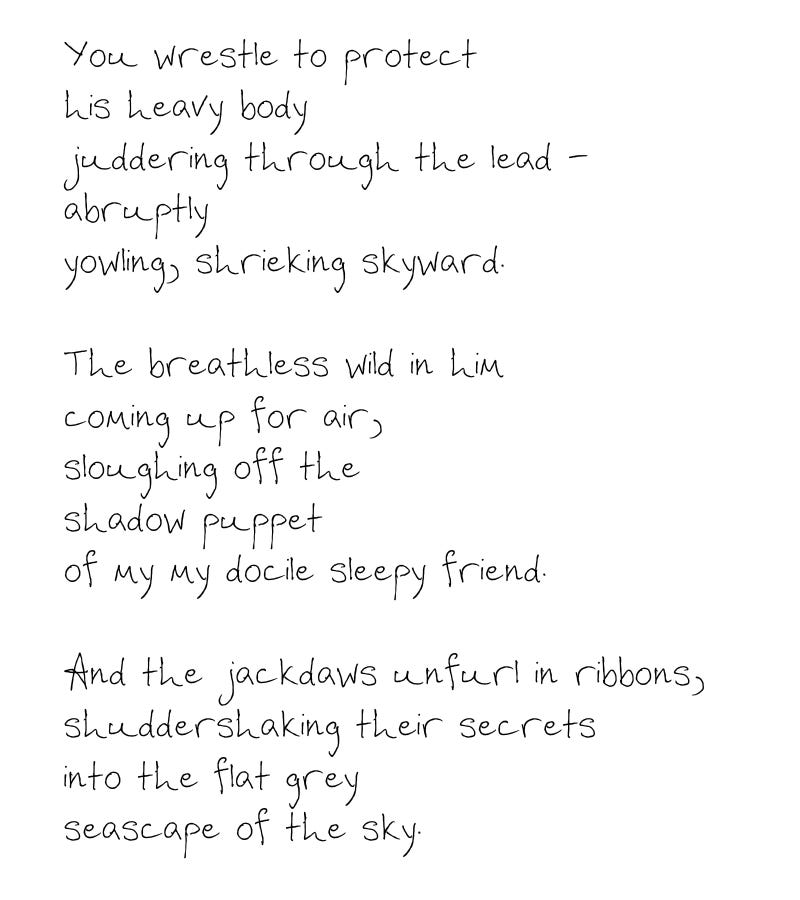 You wrestle to protect
his heavy body
juddering through the lead –
abruptly
yowling, shrieking skyward.
The breathless wild in him
coming up for air,
sloughing off the
shadow puppet
of my my docile sleepy friend.
And the jackdaws unfurl in ribbons,
shuddershaking their secrets
into the flat grey
seascape of the sky.